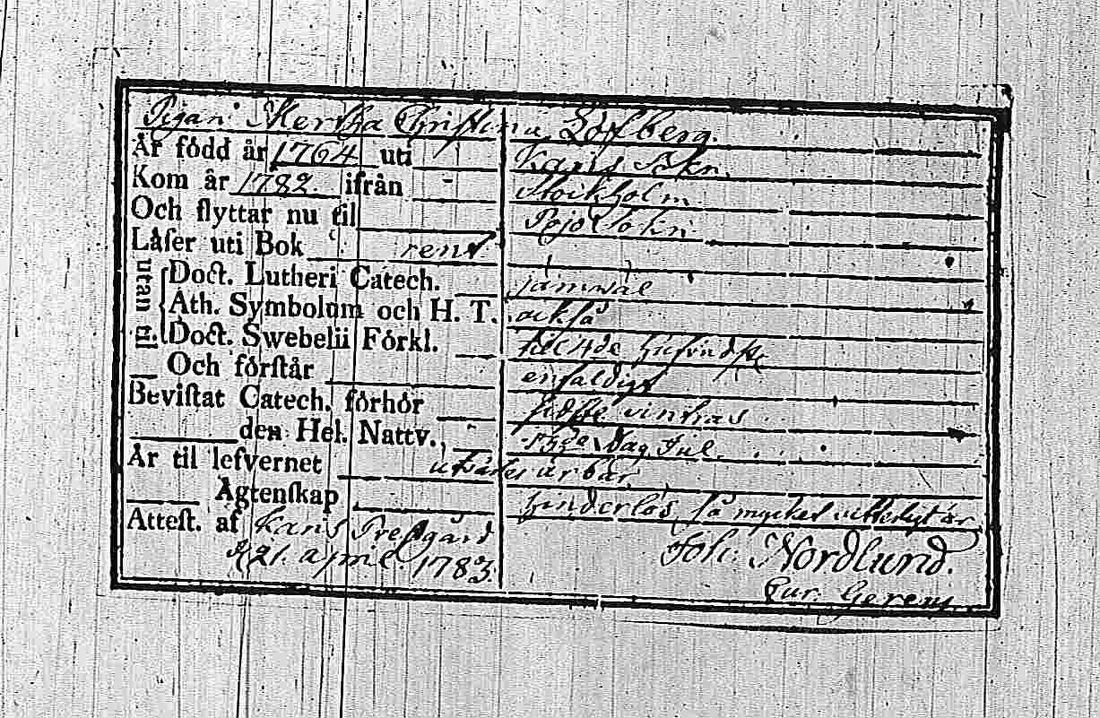 Pigan Mertha Christina Löfberg.
År född år 1764 uti Karis Skn.
Kom år 1782. ifrån Stockholm
Och flyttar nu til Pojo Sokn
Låſer uti Bok rent
utan til
Doct. Lutheri Catech. jämwäl
Ath. Symbolum och H. T. ockſå
Doct. Swebelii Förkl. til 4de
Och förſtår enfaldigt
Beviſtat Catech. förhör ſidſtl. vintras
den Hel. Nattv. Dag Jul.
År til lefvernet ärbar
Ägtenſkap hinderlös, ſå mycket vitterligt är
Atteſt. af Karis Preſtgård
d. 21. april 1783. Joh. Nordlund.
Cur. Gerens